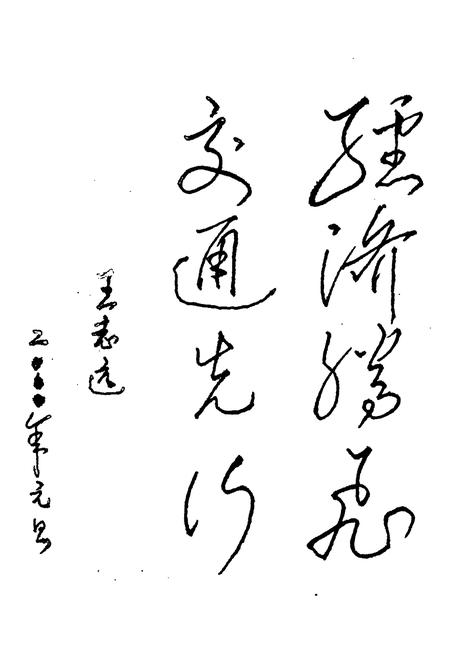 經濟騰飛
交通先行
王志远
二〇〇〇年元旦